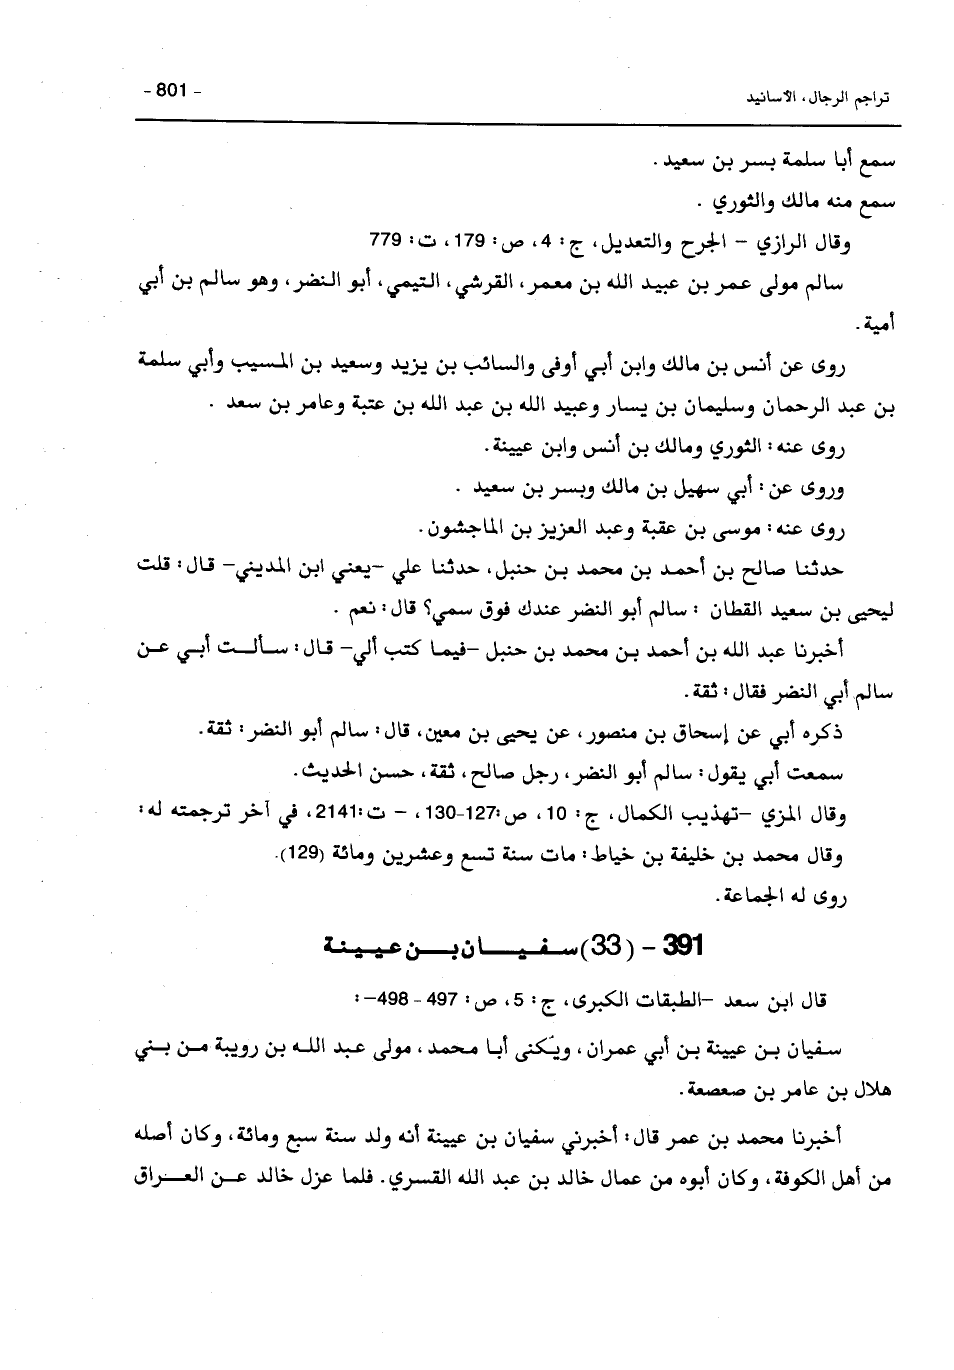 تراجم الرجال، الآسانيد
- 801 -
سمع أبا سلمة بسر بن سعيد .
سمع منه مالك والثوري .
وقال الرازي - الجرح والتعديل، ج: 4، ص: 179، ت: 779
سالم مولى عمر بن عبيد الله بن معمر، القرشي، التيمي، أبو النضر، وهو سالم بن أبي
أمية.
روى عن أنس بن مالك وابن أبي أوفى والسائب بن يزيد وسعيد بن المسيب وأبي سلمة
بن عبد الرحمان وسليمان بن يسار وعبيد الله بن عبد الله بن عتبة وعامر بن سعد .
روى عنه: الثوري ومالك بن أنس وابن عيينة.
وروى عن: أبي سهيل بن مالك وبسر بن سعيد .
روى عنه: موسى بن عقبة وعبد العزيز بن الماجشون.
حدثنا صالح بن أحمد بن محمد بن حنبل، حدثنا علي -يعني ابن المديني- قال: قلت
ليحيى بن سعيد القطان : سالم أبو النضر عندك فوق سمي؟ قال: نعم .
أخبرنا عبد الله بن أحمد بن محمد بن حنبل -فيما كتب ألي- قال: سألت أبي عن
سالم أبي النضر فقال: ثقة.
ذكره أبي عن إسحاق بن منصور، عن يحيى بن معين، قال: سالم أبو النضر: ثقة.
سمعت أبي يقول: سالم أبو النضر، رجل صالح، ثقة، حسن الحديث.
وقال المزي -تهذيب الكمال، ج: 10، ص:127-130، - ت:2141، في آخر ترجمته له:
وقال محمد بن خليفة بن خياط: مات سنة تسع وعشرين ومائة (129).
روى له الجماعة.
391 - (33) سفيان بن عيينة
قال ابن سعد -الطبقات الكبرى، ج: 5، ص: 497 - 498-:
سفيان بن عيينة بن أبي عمران، ويكنى أبا محمد، مولى عبد الله بن رويبة من بني
هلال بن عامر بن صعصعة.
أخبرنا محمد بن عمر قال: أخبرني سفيان بن عيينة أنه ولد سنة سبع ومائة، وكان أصله
من أهل الكوفة، وكان أبوه من عمال خالد بن عبد الله القسري. فلما عزل خالد عن العراق